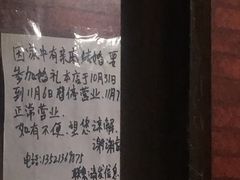 因家中有亲戚结婚 要
参加婚礼本店于10月31日
到11月6日暂停营业.11月7
正常营业.
如有不便.望您谅解.
谢谢
电话:13521567175
请发信息